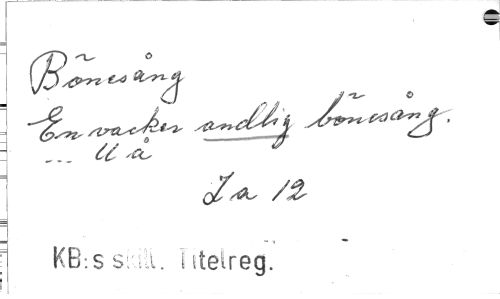 Bönesång
En vacker andlig bönesång.
... U å
I a 12
KB:s skill. Titelreg.